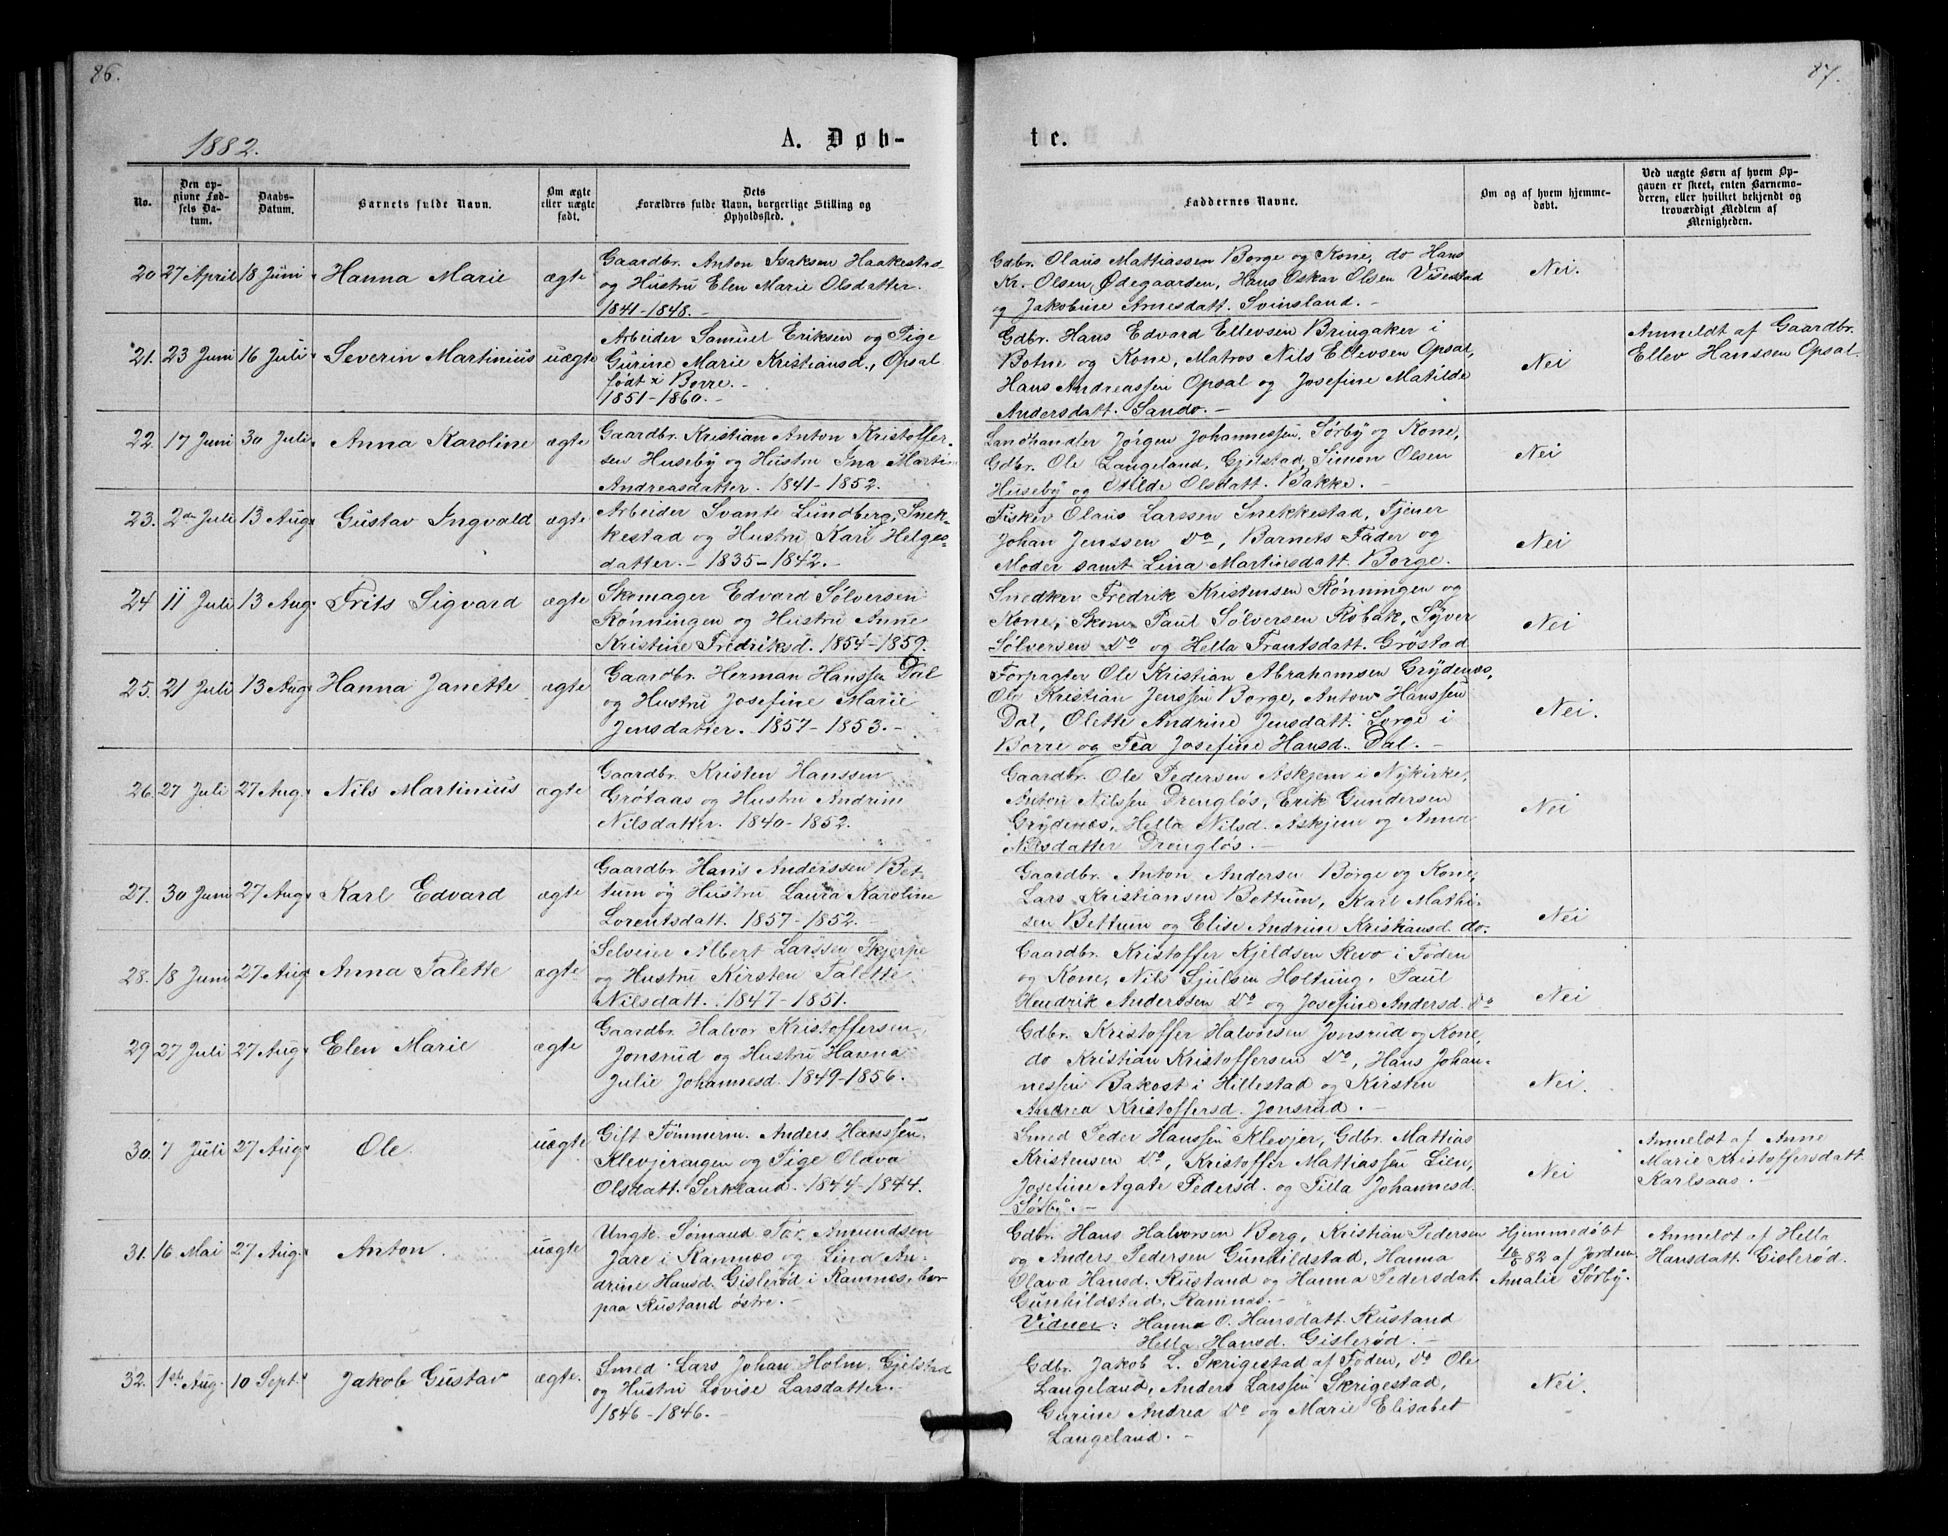 86.
1882.
A. Døb-
No.
Den op-
givne Fød-
sels Da-
tum.
Daabs-
Datum.
Barnets fulde Navn.
Om ægte
eller uægte
født.
Dets
Forældres fulde Navn, borgerlige Stilling og
Opholdssted.
20 27 April 18 Juni Hanna Marie ægte
Gaardbr. Anton Isaksen Haakestad
og Hustru Elen Marie Olsdatter.
1841-1848.-
21. 23 Juni 16 Juli Severin Martinius uægte
Arbeider Samuel Eriksen og Pige
Gurine Marie Kristiansd., Opsal
født i Borre.-
1851-1860.-
22. 17 Juni 30 Juli Anna Karoline ægte
Gaardbr. Kristian Anton Kristoffer-
sen Huseby og Hustru Ina Martin
Andreasdatter. 1841-1852.
23. 2den Juli 13 Aug. Gustav Ingvald ægte
Arbeider Svante Lundberg, Snek-
kestad og Hustru Kari Helges-
datter.- 1835-1842.-
24 11 Juli 13 Aug. Frits Sigvard ægte
Skomager Edvard Sølversen
Rønningen og Hustru Anne
Kristine Fredriksd. 1854-1859.
25. 21 Juli 13 Aug. Hanna Janette ægte
Gaardbr. Herman Hanssen Dal
og Hustru Josefine Marie
Jensdatter. 1857-1853.-
26. 27 Juli 27 Aug. Nils Martinius ægte
Gaardbr. Kristen Hanssen
Grötaas og Hustru Andrine
Nilsdatter. 1840-1852.
27. 30 Juni 27 Aug. Karl Edvard ægte
Gaardbr. Hans Anderssen Bet-
tum og Hustru Laura Karoline
Lorentsdatt. 1857-1852.
28. 18 Juni 27 Aug Anna Talette ægte
Selveier Albert Larssen Skjerpe
og Hustru Kirsten Talette
Nilsdatt. 1847-1851.
29 27 Juli 27 Aug. Elen Marie ægte
Gaardbr. Halvor Kristoffersen
Jonsrud og Hustru Hanna
Julie Johannesd. 1849-1856.
30. 7 Juli 27 Aug. Ole. uægte
Gift Tømmerm. Anders Hanssen
Klevjerengen og Pige Olava
Olsdatt. Serkland. 1844-1844.
31. 16 Mai 27 Aug. Anton. uægte
Ungk. Sømand Tor Amundsen
Jare i Ramnes og Lina An-
drine Hansd. Gislerød i Ramnes, bor
paa Rustand østre.-
32. 1ste Aug. 10 Sept. Jakob Gustav ægte.
Smed Lars Johan Holm, Gjelstad
og Hustru Lovise Larsdatter.-
1846-1846.-
87.
te.
Faddernes Navne.
Om og af hvem hjemme-
døbt.
Ved uægte Børn af hvem Op-
gaven er skeet, enten Barnemo-
deren, eller hvilket bekjendt og
troværdigt Medlem af
Menigheden.
Gdbr. Olaus Mattiassen Borge og Kone, do Hans
Kr. Olsen Ødegaarden, Hans Oskar Olsen Viestad
og Jakobine Arnesdatt. Svinsland.-
Nei.
Gdbr. Hans Edvard Ellevsen Bringaker i
Botne og Kone, Matros Nils Ellevsen Opsal,
Hans Andreassen Opsal og Josefine Matilde
Andersdatt. Sandø.-
Nei
Anmeldt af Gaardbr.
Ellev Hanssen Opsal.
Landhandler Jørgen Johannessen, Sørby og Kone,
Gdbr. Ole Langeland, Gjelstad, Simon Olsen
Huseby og Milde Olsdatt. Bakke.-
Nei
Fisker Olaus Larssen Snekkestad, Tjener
Johan Jenssen Do, Barnets Fader og
Moder samt Lina Martinsdatt. Borge.
Nei
Snedker Fredrik Kristensen Rønningen og
Kone, Skom. Paul Sølversen Robak, Syver
Sølversen Do og Hella Frantsdatt. Gröstad
Nei
Forpagter Ole Kristian Abrahamsen Grydenæs,
Ole Kristian Jenssen Borge, Anton Hanssen
Dal, Olette Andrine Jensdatt. Lorge i
Borre og Tea Josefine Hansd. Dal.-
Nei.
Gaardbr. Ole Pedersen Askjem i Nykirke,
Anton Nilssen Drengløs, Erik Gundersen
Grydenæs, Hella Nilsd. Askjem og Anna
Nilsdatter Drengløs.-
Nei
Gaardbr. Anton Andersen Borge og Kone,
Lars Kristiansen Bettum, Karl Mathi-
sen Bettum og Elise Andrine Kristiansd. do.
Nei
Gaardbr. Kristoffer Kjeldsen Revo i Foden
og Kone, Nils Sjulsen Holtung, Paul
Hendrik Anderssen Do og Josefine Andersd. Do
Nei
Gdbr. Kristoffer Halvorsen Jonsrud og Kone,
do Kristian Kristoffersen Do, Hans Johan-
nessen Bakost i Hillestad og Kirsten
Andrea Kristoffersd. Jonsrud.-
Nei.
Smed Peder Hanssen Klevjer, Gdbr. Mattias
Kristensen Do, Kristoffer Mattiassen Lien,
Josefine Agate Pedersd. og Tilla Johannesd.
Sørby.-
Nei
Anmeldt af Anne
Marie Kristoffersdatt.
Karlsaas.
Gdbr. Hans Halvorsen Berg, Kristian Pedersen
og Anders Pedersen Gunhildstad, Hanna
Olava Hansd. Rustand og Hanna Pedersdat.
Gunhildstad, Ramnes.-
Vidner: Hanna O. Hansdatt. Rustand
Hella Hansd. Gislerød.-
Hjemmedøbt
16/5 82 af Jordem.
Amalie Sørby.
Anmeldt af Hella
Hansdatt. Gislerød.
Gdbr. Jakob L. Skrigestad af Foden, Do Ole
Langeland, Anders Larssen Skrigestad,
Gurine Andrea Do og Marie Elisabet
Langeland.-
Nei.